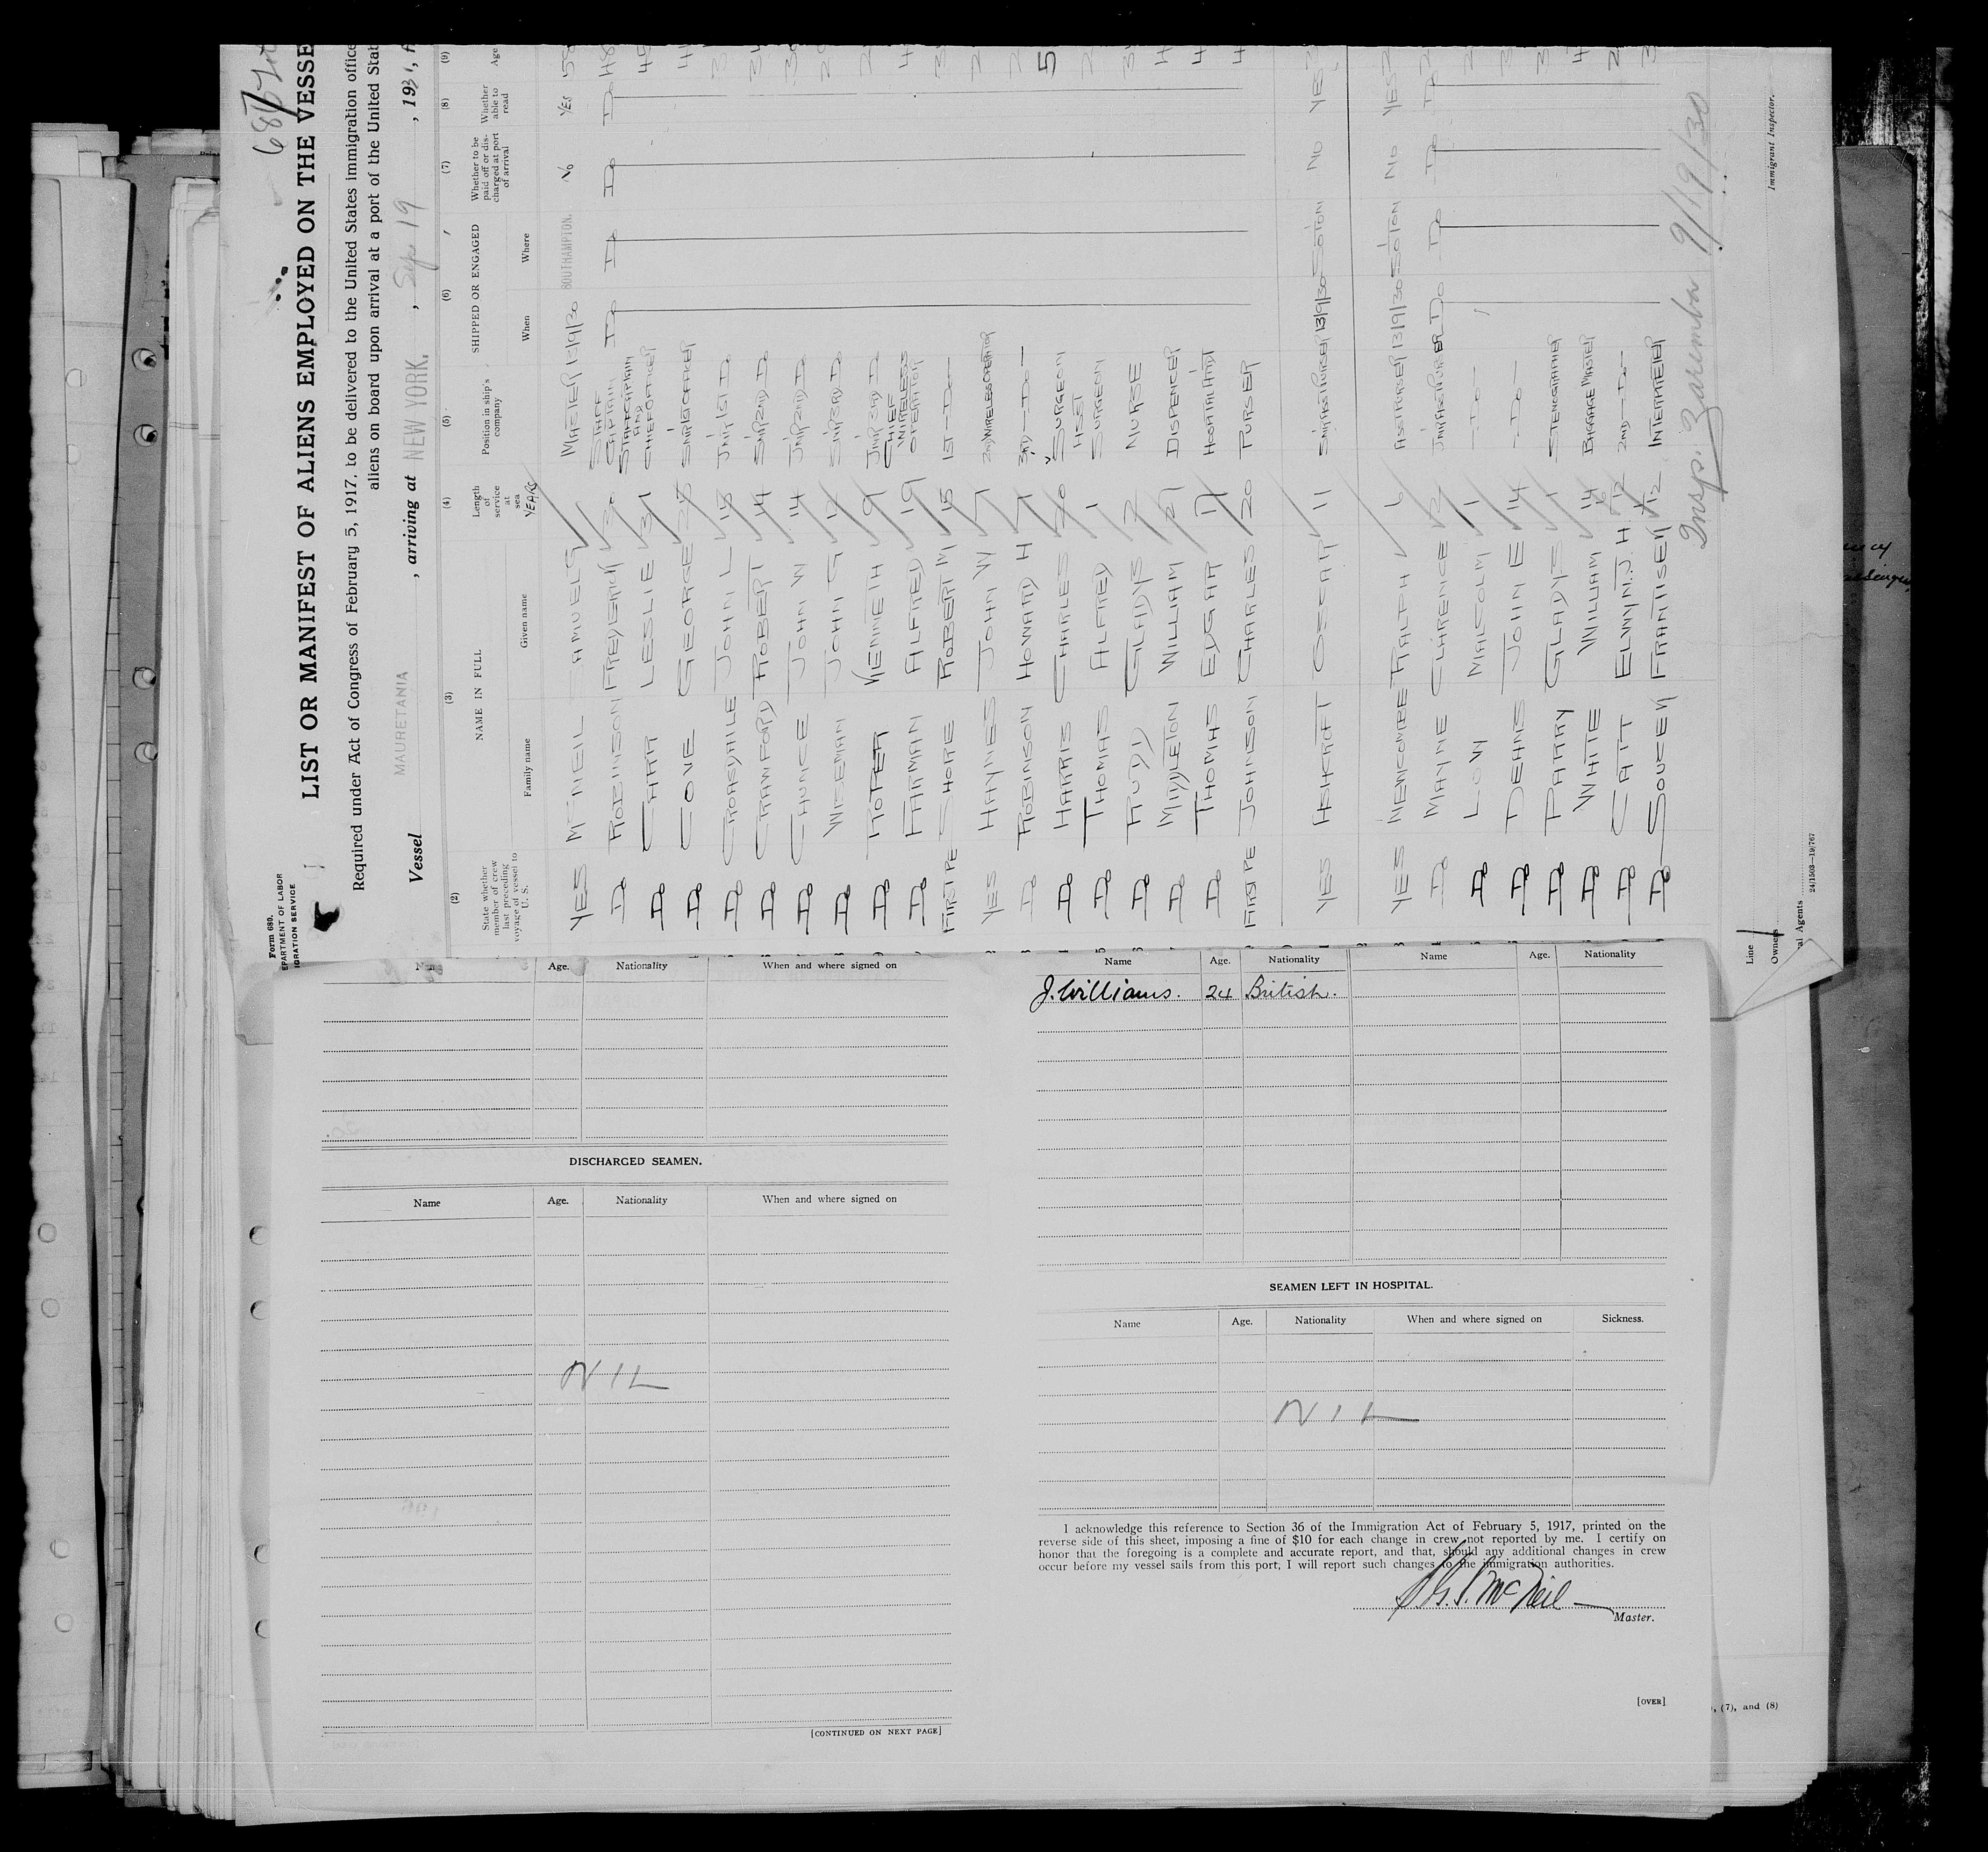 Form 680.
EPARTMENT OF LABOR
IGRATION SERVICE
LIST OR MANIFEST OF ALIENS EMPLOYED ON THE VESSE
Required under Act of Congress of February 5, 1917, to be delivered to the United States immigration office
aliens on board upon arrival at a port of the United Stat
Vessel MAURETANIA, arriving at NEW YORK., Sep 19, 193
(2) (3) (4) (5) (6) (7) (8) (9)
State whether member of crew last preceding voyage of vessel to U. S.
NAME IN FULL
Family name Given name
Length of service at sea YEARS
Position in ship's company
SHIPPED OR ENGAGED
When Where
Whether to be paid off or discharged at port of arrival
Whether able to read
Age
YES McNEIL SAMUEL G MASTER 13/9/30 SOUTHAMPTON. No YES
Do ROBINSON FREDERICK STAFF CAPTAIN Do Do Do Do 48
Do CARR LESLIE 31 STAFF CAPTAIN AND CHIEF OFFICER 45
Do COVE GEORGE 25 SNR 1ST OFFICER
Do CROASDAILE JOHN L 18 JNR 1ST Do
Do CRAWFORD ROBERT 14 SNR 2ND Do
Do CHUNCE JOHN W 14 JNR 2ND Do
Do WISEMAN JOHN G SNR 3RD Do
Do ROPER KENNETH 9 JNR 3RD Do
Do FARMAN ALFRED 19 CHIEF WIRELESS OPERATOR
FIRST PE SHORE ROBERT M 15 1ST - Do -
YES HAYNES JOHN W 7 2ND WIRELESS OPERATOR
Do ROBINSON HOWARD H 7 3RD - Do -
Do HARRIS CHARLES 20 SURGEON
Do THOMAS ALFRED 1 ASST SURGEON
Do RUDD GLADYS 2 NURSE
Do MIDDLETON WILLIAM 27 DISPENCER
Do THOMAS EDGAR 17 HOSPITAL ATTDT
FIRST PE JOHNSON CHARLES 20 PURSER
YES ASHCROFT OSCAR 11 SNR ASST PURSER 13/9/30 SOTON NO YES
YES NEWCOMBE RALPH 6 ASST PURSER 13/9/30 SOTON NO YES
Do MAYNE CLARENCE 2 JNR ASST PURSER Do Do Do Do
Do LOW MALCOLM 1 - Do -
Do DEANS JOHN E 14 - Do -
Do PARRY GLADYS 1 STENOGRAPHER
Do WHITE WILLIAM 14 BAGGAGE MASTER
Do CATT ELWYN. J. H 2ND - Do -
Do SOUCEK FRANTISEK INTERPRETER
Insp. Zaremba 9/19/30
Immigrant Inspector.
Line
Owners
al Agents
24/1503—19/767
Age. Nationality When and where signed on
DISCHARGED SEAMEN.
Name Age. Nationality When and where signed on
NIL
[CONTINUED ON NEXT PAGE]
Name Age. Nationality Name Age. Nationality
J. Williams. 24 British.
SEAMEN LEFT IN HOSPITAL.
Name Age. Nationality When and where signed on Sickness.
NIL
I acknowledge this reference to Section 36 of the Immigration Act of February 5, 1917, printed on the
reverse side of this sheet, imposing a fine of $10 for each change in crew not reported by me. I certify on
honor that the foregoing is a complete and accurate report, and that, should any additional changes in crew
occur before my vessel sails from this port, I will report such changes to the immigration authorities.
S. G. S. McNeil
Master.
[OVER]
, (7), and (8)